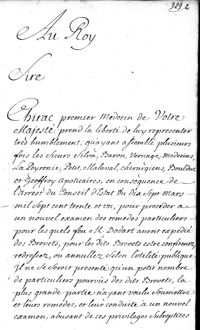 329.2
Au Roy
Sire
Chirac premier Médecin de Votre
Majesté prend la liberté de luy representer
tres humblement, qu'ayant assemblé plusieurs
fois les Sieurs Silva, Baron, Vernage, Médecins,
La Peyronie, Petit, Malaval, chirurgiens, Boulduc
et Geoffroy Apoticaires, en consequence de
l'arrest du Conseil d'Etat du dix Sept Mars
mil Sept cent trente et un, pour proceder a
un nouvel examen des remedes particuliers
pour les quels feu M. Dodart auroit expedié
des Brevets, pour les dits Brevets estre confirmez,
redressez, ou annullez, Selon l'utilité publique
Il ne Se Seroit presenté qu'un petit nombre
de particuliers pourvûs des dits Brevets, la
plus grande partie n'ayant voulu Soumettre
et leurs remedes, et leur conduite a un nouvel
examen, abusant de ces privileges Subreptices